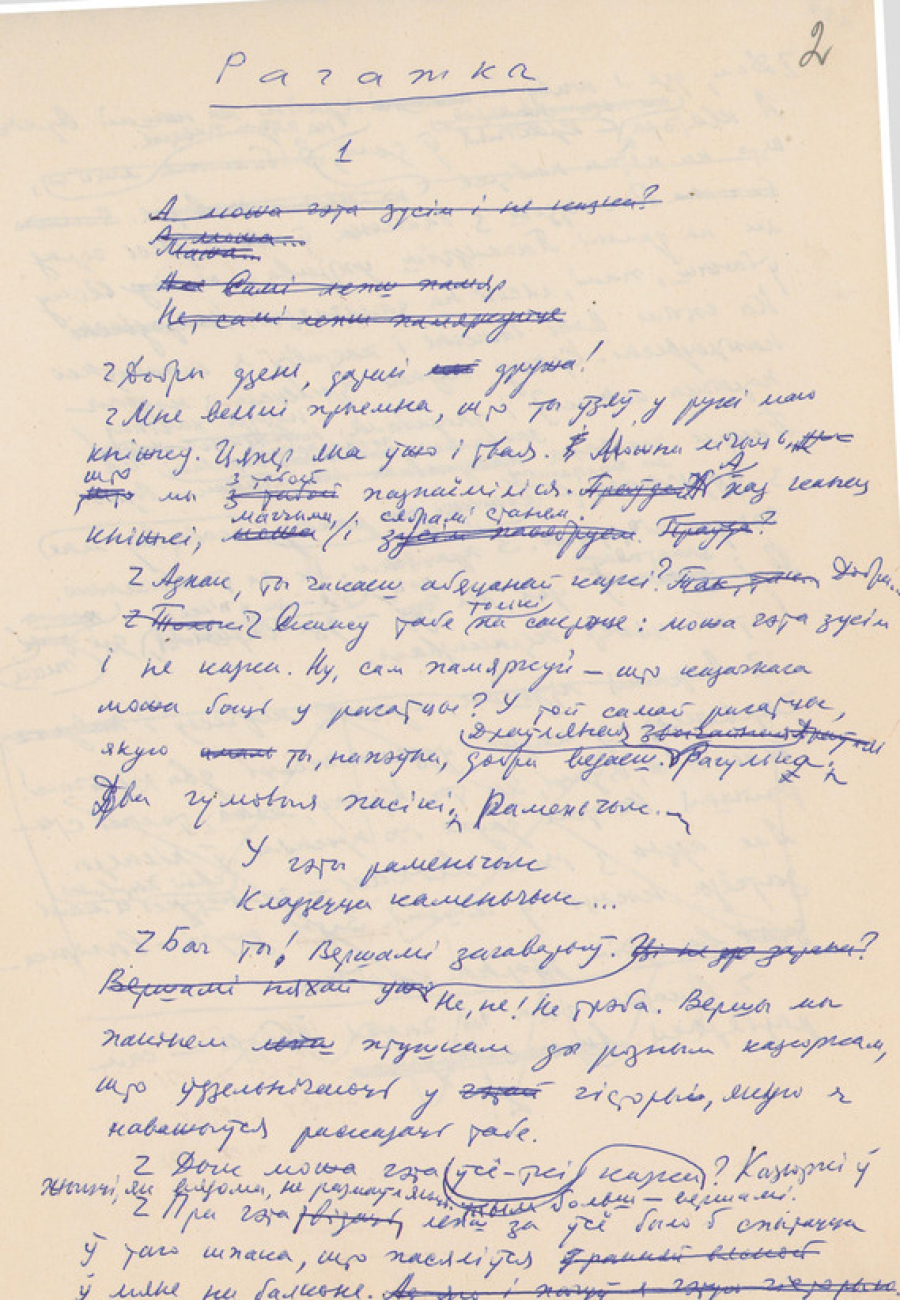 2
Рагатка
1
А можа гэта зусім і не казка?
А можа...
Можа...
Але Самі лепш памяр
Не, самі лепш памяркуйце
Добры дзень, дарагі дружа!
Мне вельмі прыемна, што ты ўзяў у рукі маю
кніжку. Цяпер яна ўжо і твая. Можна лічыць,
што з табой А
мы з табой пазнаёміліся. Праўда пад канец
магчыма, і сябрамі станем.
кніжкі, можа зусім пасябруем. Праўда?
Аднак, ты чакаеш абяцанай казкі? Так, так. Добра...
толькі
Скажу табе па сакрэце: можа гэта зусім
і не казка. Ну, сам памяркуй — што казачнага
можа быць у рагатцы? У той самай рагатцы,
Драўляная
якую ты, напэўна, добра ведаеш. Рагулька.
Два гумовыя пасікі. Раменьчык.
У гэты раменьчык
Кладзецца каменьчык...
Бач ты! Вершамі загаварыў. Ці не зарана?
Вершамі няхай Не, не! Не трэба. Вершы мы
пакінем птушкам ды розным казюркам,
што ўдзельнічаюць у гэтай гісторыі, якую я
наважыўся расказаць табе.
Дык можа гэта ўсё-ткі казка? Казюркі ў
жыцці, як вядома, не размаўляюць, тым больш — вершамі.
Пра гэта лепш за ўсё было б спытацца
ў таго шпака, што пасяліўся
ў мяне на балконе.